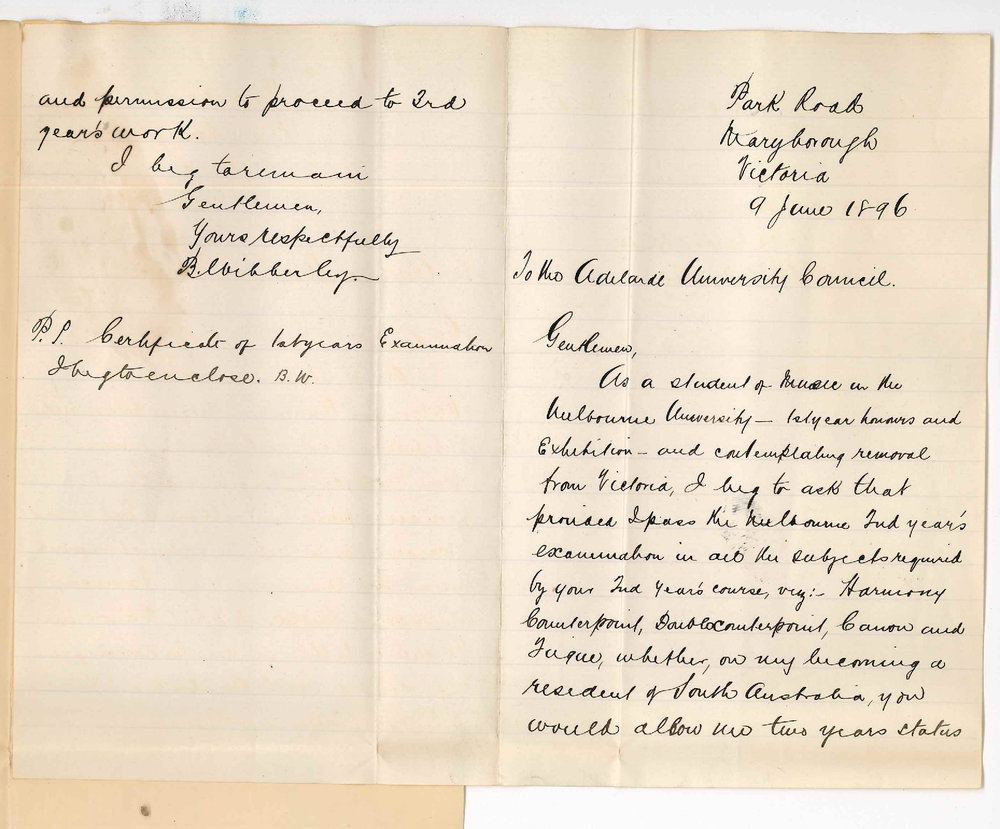 Park Road
Maryborough
Victoria
9 June 1896.
To the Adelaide University Council.
Gentlemen,
As a student of Music in the
Melbourne University – 1st year honours and
Exhibition – and contemplating removal
from Victoria, I beg to ask that
provided I pass the Melbourne 2nd year's
examination in all the subjects required
by your 2nd Year's course, viz:- Harmony
Counterpoint, Double counterpoint, Canon and
Fugue, whether, on my becoming a
resident of South Australia, you
would allow me two years status
and permission to proceed to 3rd
year's work.
I beg to remain
Gentlemen,
Yours respectfully
B. Wibberley.
P.S. Certificate of 1st years Examination
I beg to enclose. B.W.